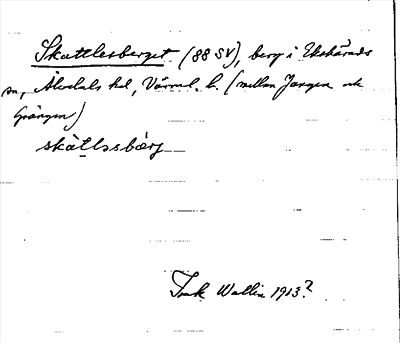 Skattlesberget (88 SV), berg i Ekshärads
sn, Älvdals hd, Värml. l. (mellan Jangen och
Grängen)
skàtlssbærj
Wallin 1913?